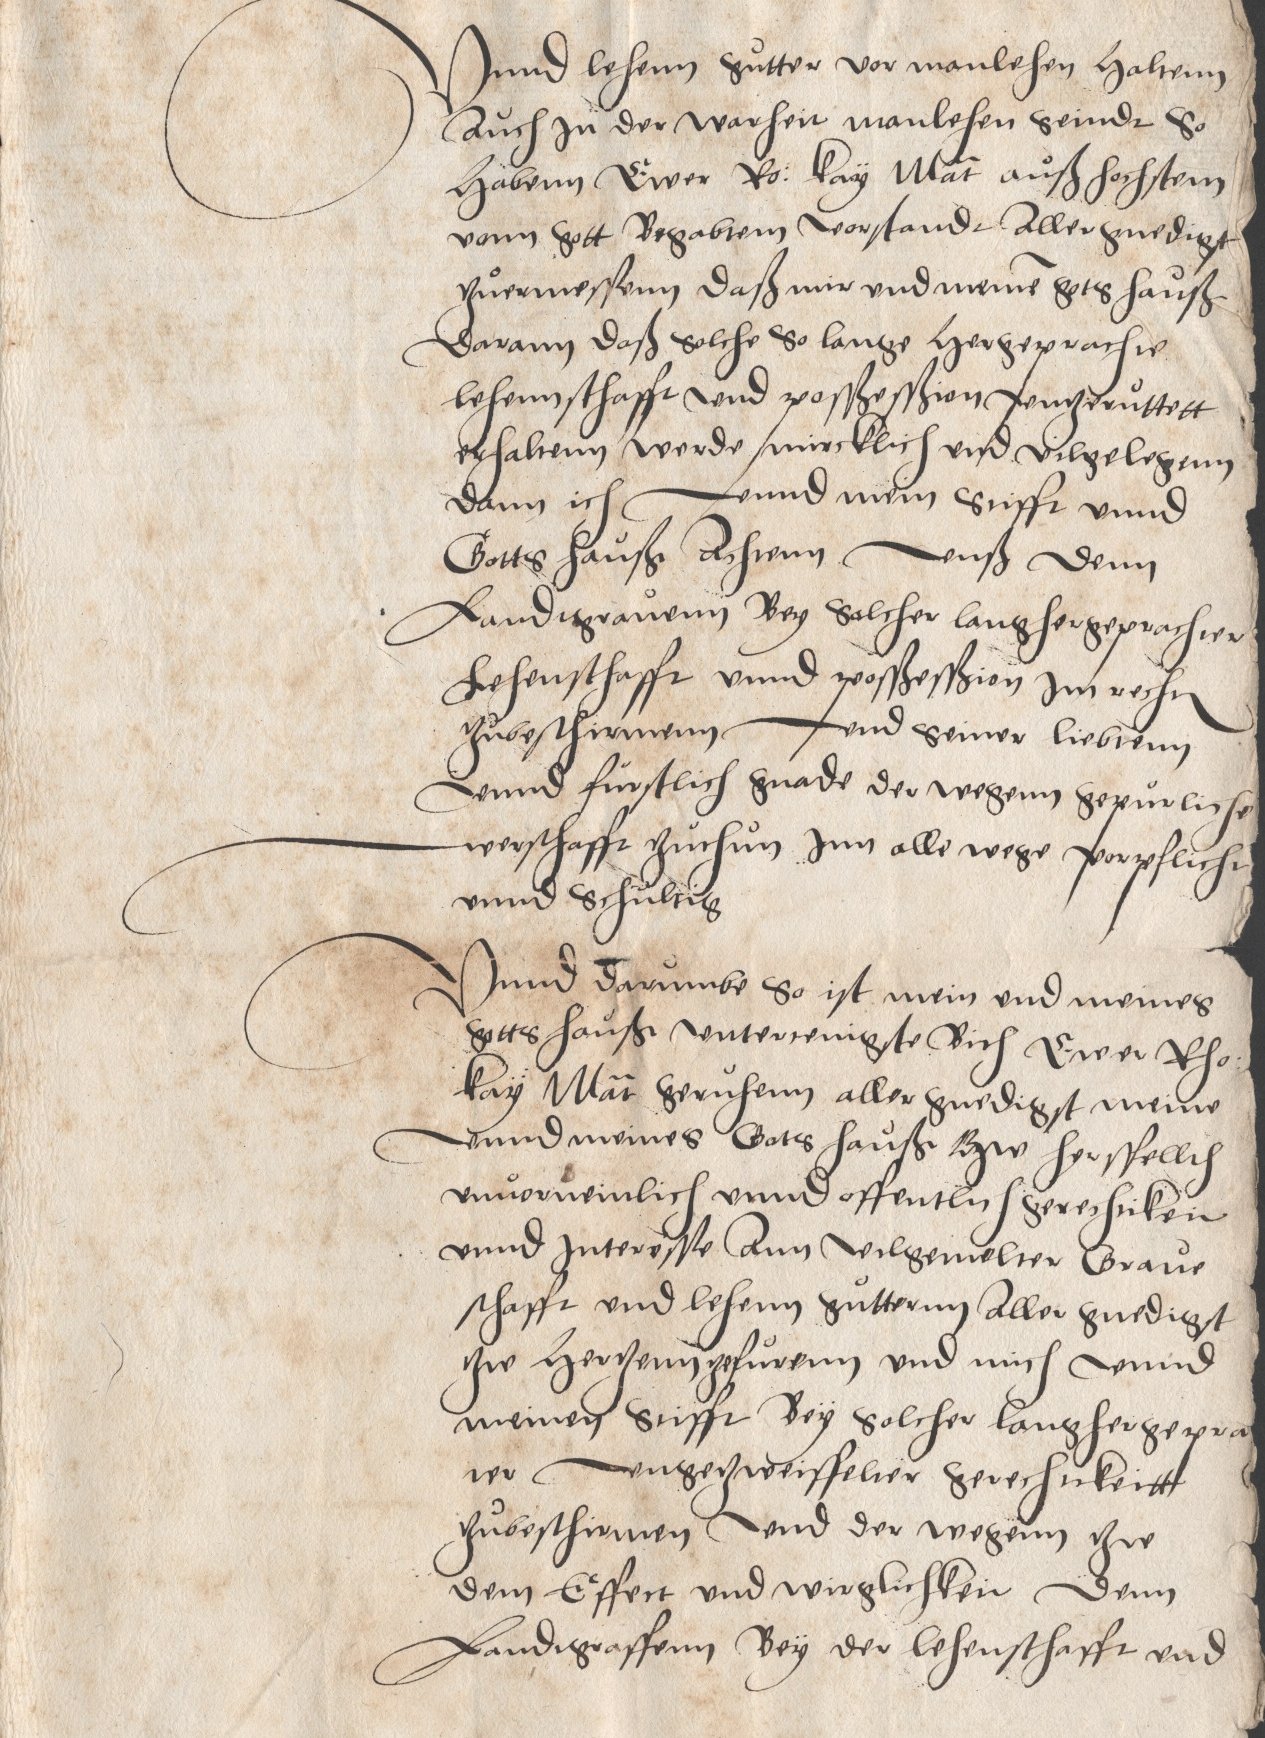 Vnnd lehenn gutter vor manlehen haltenn
Auch Jn der warheit manlehen seindt So
Habenn Ewer Ro: kay Mat auß hochstem
vonn gott Begabtem vorstandt Aller gnedigst
zuermessenn daß mir vnd meinē gots hauß
darann daß solche so lange hergeprachte
lehennschafft vnd posseßsion vnzeruttett
erhaltenn werde mircklich vnd vilgelegenn
dann ich vnnd mein Stifft vnnd
Gotts hauß Achtenn vnß denn
Landtgrauenn Bey solcher langhergeprachter
Lehenschafft vnnd posseßsion Jm recht
zubeschirmenn vnd seiner liebtenn
vnnd furstlich gnade der wegenn gepurliche
werschafft zuthun Jnn alle wege vorpflicht
vnnd schultig
Vnnd darumbe so ist mein vnd meines
gotts hauß vntertenigste Bith Ewer Rho:
kay Mat geruhenn aller gnedigst meine
vnnd meines Gots hauß zw herssfellth
vnuerneinlich vnnd offentlich gerechtikeit
vnnd Jnteresse Ann vilgemelter Graue
schafft vnd lehenn gutternn Aller gnedigst
zw Hertzenn zefurenn vnd mich vnnd
meinen Stifft Bey solcher langhergepra
ter vngezweiffelter gerechtikeitt
zubeschirmen vnd der wegenn zw
dem Effect vnd wirglichkeit denn
Landtgraffenn Bey der lehenschafft vnd